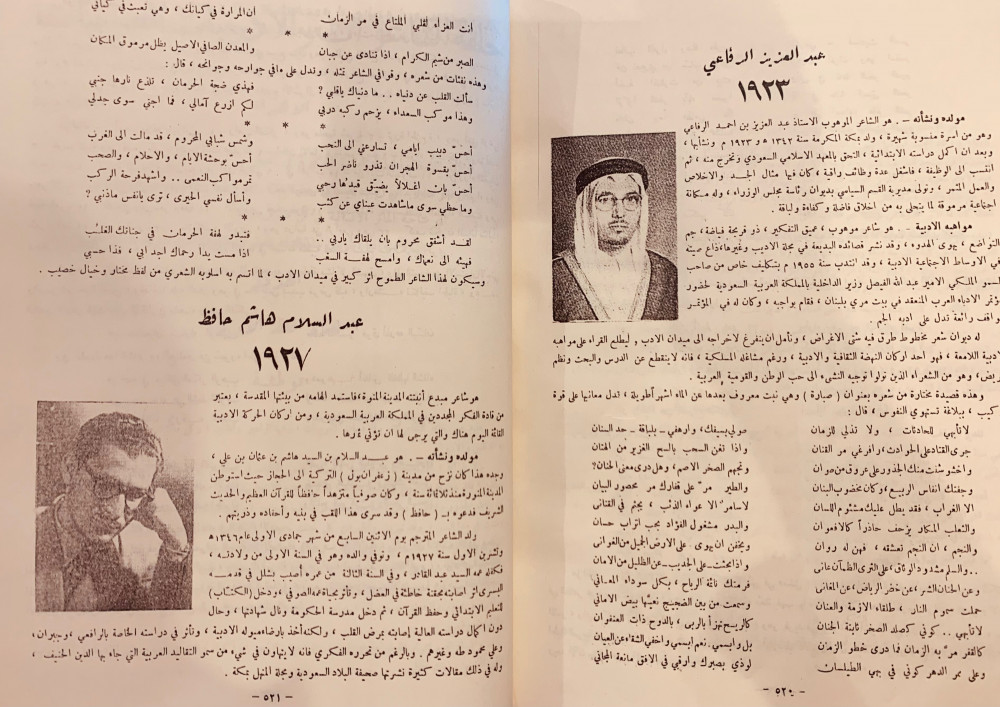 عبد العزيز الرفاعي
١٩٢٣
مولده ونشأته - . هو الشاعر الموهوب الاستاذ عبد العزيز بن احمد الرفاعي
وهو من اسرة منسوبة شهيرة ، ولد بمكة المكرمة سنة ١٣٤٢ ه و ١٩٢٣ م ونشأبها ،
وبعد ان اكمل دراسته الابتدائية ، التحق بالمعهد الاسلامي السعودي وتخرج منه ، ثم
انتسب الى الوظيفة ، فاشغل عدة وظائف راقية ، كان فيها مثال الجد والاخلاص
والعمل المثمر ، وتولى مديرية القسم السياسي بديوان رئاسة مجلس الوزراء ، وله مكانة
اجتماعية مرموقة لما يتحلى به من اخلاق فاضلة وكفاءة ولباقة .
مواهبه الادبية - . هو شاعر موهوب ، عميق التفكير ، ذو قريحة فياضة ، جم
التواضع ، يهوى الهدوء ، وقد نشر قصائده البديعة في مجلة الاديب وغيرها ، ذاع صيته
في الاوساط الاجتماعية الادبية ، وقد انتدب سنة ١٩٥٥ م بتكليف خاص من صاحب
السمو الملكي الامير عبد الله الفيصل وزير الداخلية بالمملكة العربية السعودية لحضور
مؤتمر الادباء العرب المنعقد في بيت مري بلبنان ، فقام بواجبه ، وكان له في المؤتمر
مواقف رائعة تدل على ادبه الجم .
له ديوان شعر مخطوط طرق فيه شتى الاغراض ، ونأمل ان يتفرغ لاخراجه الى ميدان الادب ، ليطلع القراء على مواهبه
الادبية اللامعة ، فهو احد اركان النهضة الثقافية والادبية ، ورغم مشاغله المسلكية ، فانه لاينقطع عن الدرس والبحث ونظم
القريض، وهو من الشعراء الذين تولوا توجيه النشىء الى حب الوطن والقومية العربية .
وهذه قصيدة مختارة من شعره بعنوان ( صبارة ) وهي نبت معروف بعدها عن الماء اشهراً طويلة ، تدل معانيها على قوة
التركيب ، ببلاغة تستهوي النفوس ، قال :
لا تأبهي للحادثات ، ولا تذلي للزمان صولي بسيفك، وارهفي - بلباقة - حد السنان
جرى القتاد على الحوادث ، وافرغي مر القنان واذا ثغن السحب بالسح الغزير من الهتان
واخشوشنت منك الجذور على عروق من صوان وتجهم الصخر الاصم ، وهل درى معنى الحنان ؟
وجفتك انفاس الربيع ، وكان مخضوب البنان والطير مرّ على قفارك مر محصور البيان
الا الغراب ، فقد يطل عليك مشئوم اللسان لاسامر الا عواء الذئب ، يجثم في القناني
والثعلب المكار يزحف حاذراً كالافعوان والبدر مشغول الفؤاد بحب اتراب حسان
والنجم ، ان النجم تعشقه ، فهن له روان ويخفن ان يهوى على الارض الجميل من الغواني
وعن الجنان الشم ، عن خضر الرياض ، عن المغاني فرمتك نائة الرياح ، بكل سوداء المعاني
حملت سموم النار ، طلقاء الازمة والعنان وسمعت من بين الضجيج نعيّها بيض الاماني
لاتأبهي .. كوني كصلد الصخر ثابتة الجنان كالريح تهزأ بالربى ، بالدوح ذات العنفوان
كالقفر مر به الزمان فما درى خطو الزمان بل وابسمي. نعم ابسمي واخفي الشقاء عن العيان
وعلى ممر الدهر كوني في بهي الطيلسان لوذي بصبرك وارقبي في الافق مانعة المجاني
- ٥٢٠ -
انت العزاء لقلبي الملتاع في مر الزمان ان المرارة في كيانك ، وهي تعبث في كياني
* * *
الصبر من شيم الكرام ، اذا تنادى عن جبان والمعدن الصافي الاصيل يظل مرموق المكان
وهذه نفثات من شعره ، وقوافي الشاعر تمثله ، وتدل على مافي جوارحه وجوانحه ، قال :
سألت القلب عن دنياه .. ما دنياك ياقلبي ؟ فهذي ضجة الحرمان ، تلذع نارها جنبي
وهذا موكب السعداء ، يزحم ركبه دربي لكم ازرع آمالي ، فما اجني سوى جدلي
* * *
أحسّ دبيب ايامي ، تسارعني الى النحب وشمس شبابي المحروم ، قد مالت الى الغرب
أحسّ بقسوة الهجران تذرو ناضر الحب أحسّ وحشة الايام ، والاحلام ، والصحب
أحسّ بأن اغلالاً يضيّق قيدها رحبي تمر مواكب النعمى .. واشهد فرحة الركب
وماحظي سوى ماشاهدت عيناي عن كثب وأسأل نفسي الحيرى ، ترى يانفس ماذنبي ؟
* * *
لقد أشفق محروم بأن يلقاك ياربي .. فتبدو لهفة الحرمان في جناتك الغلب
فهيئه الى نعماك ، وامسح لهفة السغب اذا مست يدا رحماك اجدابي ، فذا حسبي
وسيكون لهذا الشاعر الطموح اثر كبير في ميدان الادب ، لما اتسم به اسلوبه الشعري من لفظ مختار وخيال خصيب .
عبد السلام هاشم حافظ
١٩٢٧
هو شاعر مبدع أنبتته المدينة المنورة، فاستمد الهامه من بيئتها المقدسة ، يعتبر
من قادة الفكر المجددين في المملكة العربية السعودية ، ومن اركان الحركة الادبية
القائمة اليوم هناك والتي يرجى لها ان تؤتي ثمارها .
مولده ونشأته - . هو عبد السلام بن السيد هاشم بن عثمان بن علي ،
وجده هذا كان نزح من مدينة ( زعفران بول ) التركية الى الحجاز حيث استوطن
المدينة المنورة منذ ثلاثمائة سنة ، وكان صوفياً متزهداً حافظاً للقرآن العظيم والحديث
الشريف فدعوه بـ ( حافظ ) وقد سرى هذا اللقب في بنيه وأحفاده وذريتهم .
ولد الشاعر المترجم يوم الاثنين السابع من شهر جمادى الاولى عام ١٣٤٦ ه
وتشرين الاول سنة ١٩٢٧ م ، وتوفي والده وهو في السنة الاولى من ولادته ،
فكفله عمه السيد عبد القادر ، وفي السنة الثالثة من عمره أصيب بشلل في قدمه
اليسرى اثر اصابته بحقنة خاطئة في العضل ، وتأثر بحياة عمه الصوفي ، ودخل (الكتّاب)
لتعلم الابتدائي وحفظ القرآن ، ثم دخل مدرسة الحكومة ونال شهادتها ، وحال
دون اكمال دراسته العالية إصابته بمرض القلب ، ولكنه أخذ بارضاء ميوله الادبية ، وتأثر في دراسته الخاصة بالرافعي ، وجبران ،
وعلي محمود طه وغيرهم . وبالرغم من تحرره الفكري فانه لايتهاون في شيء من سمو التقاليد العربية التي جاء بها الدين الحنيف ،
وله في ذلك مقالات كثيرة نشرتها صحيفة البلاد السعودية ومجلة المنهل بمكة .
- ٥٢١ -